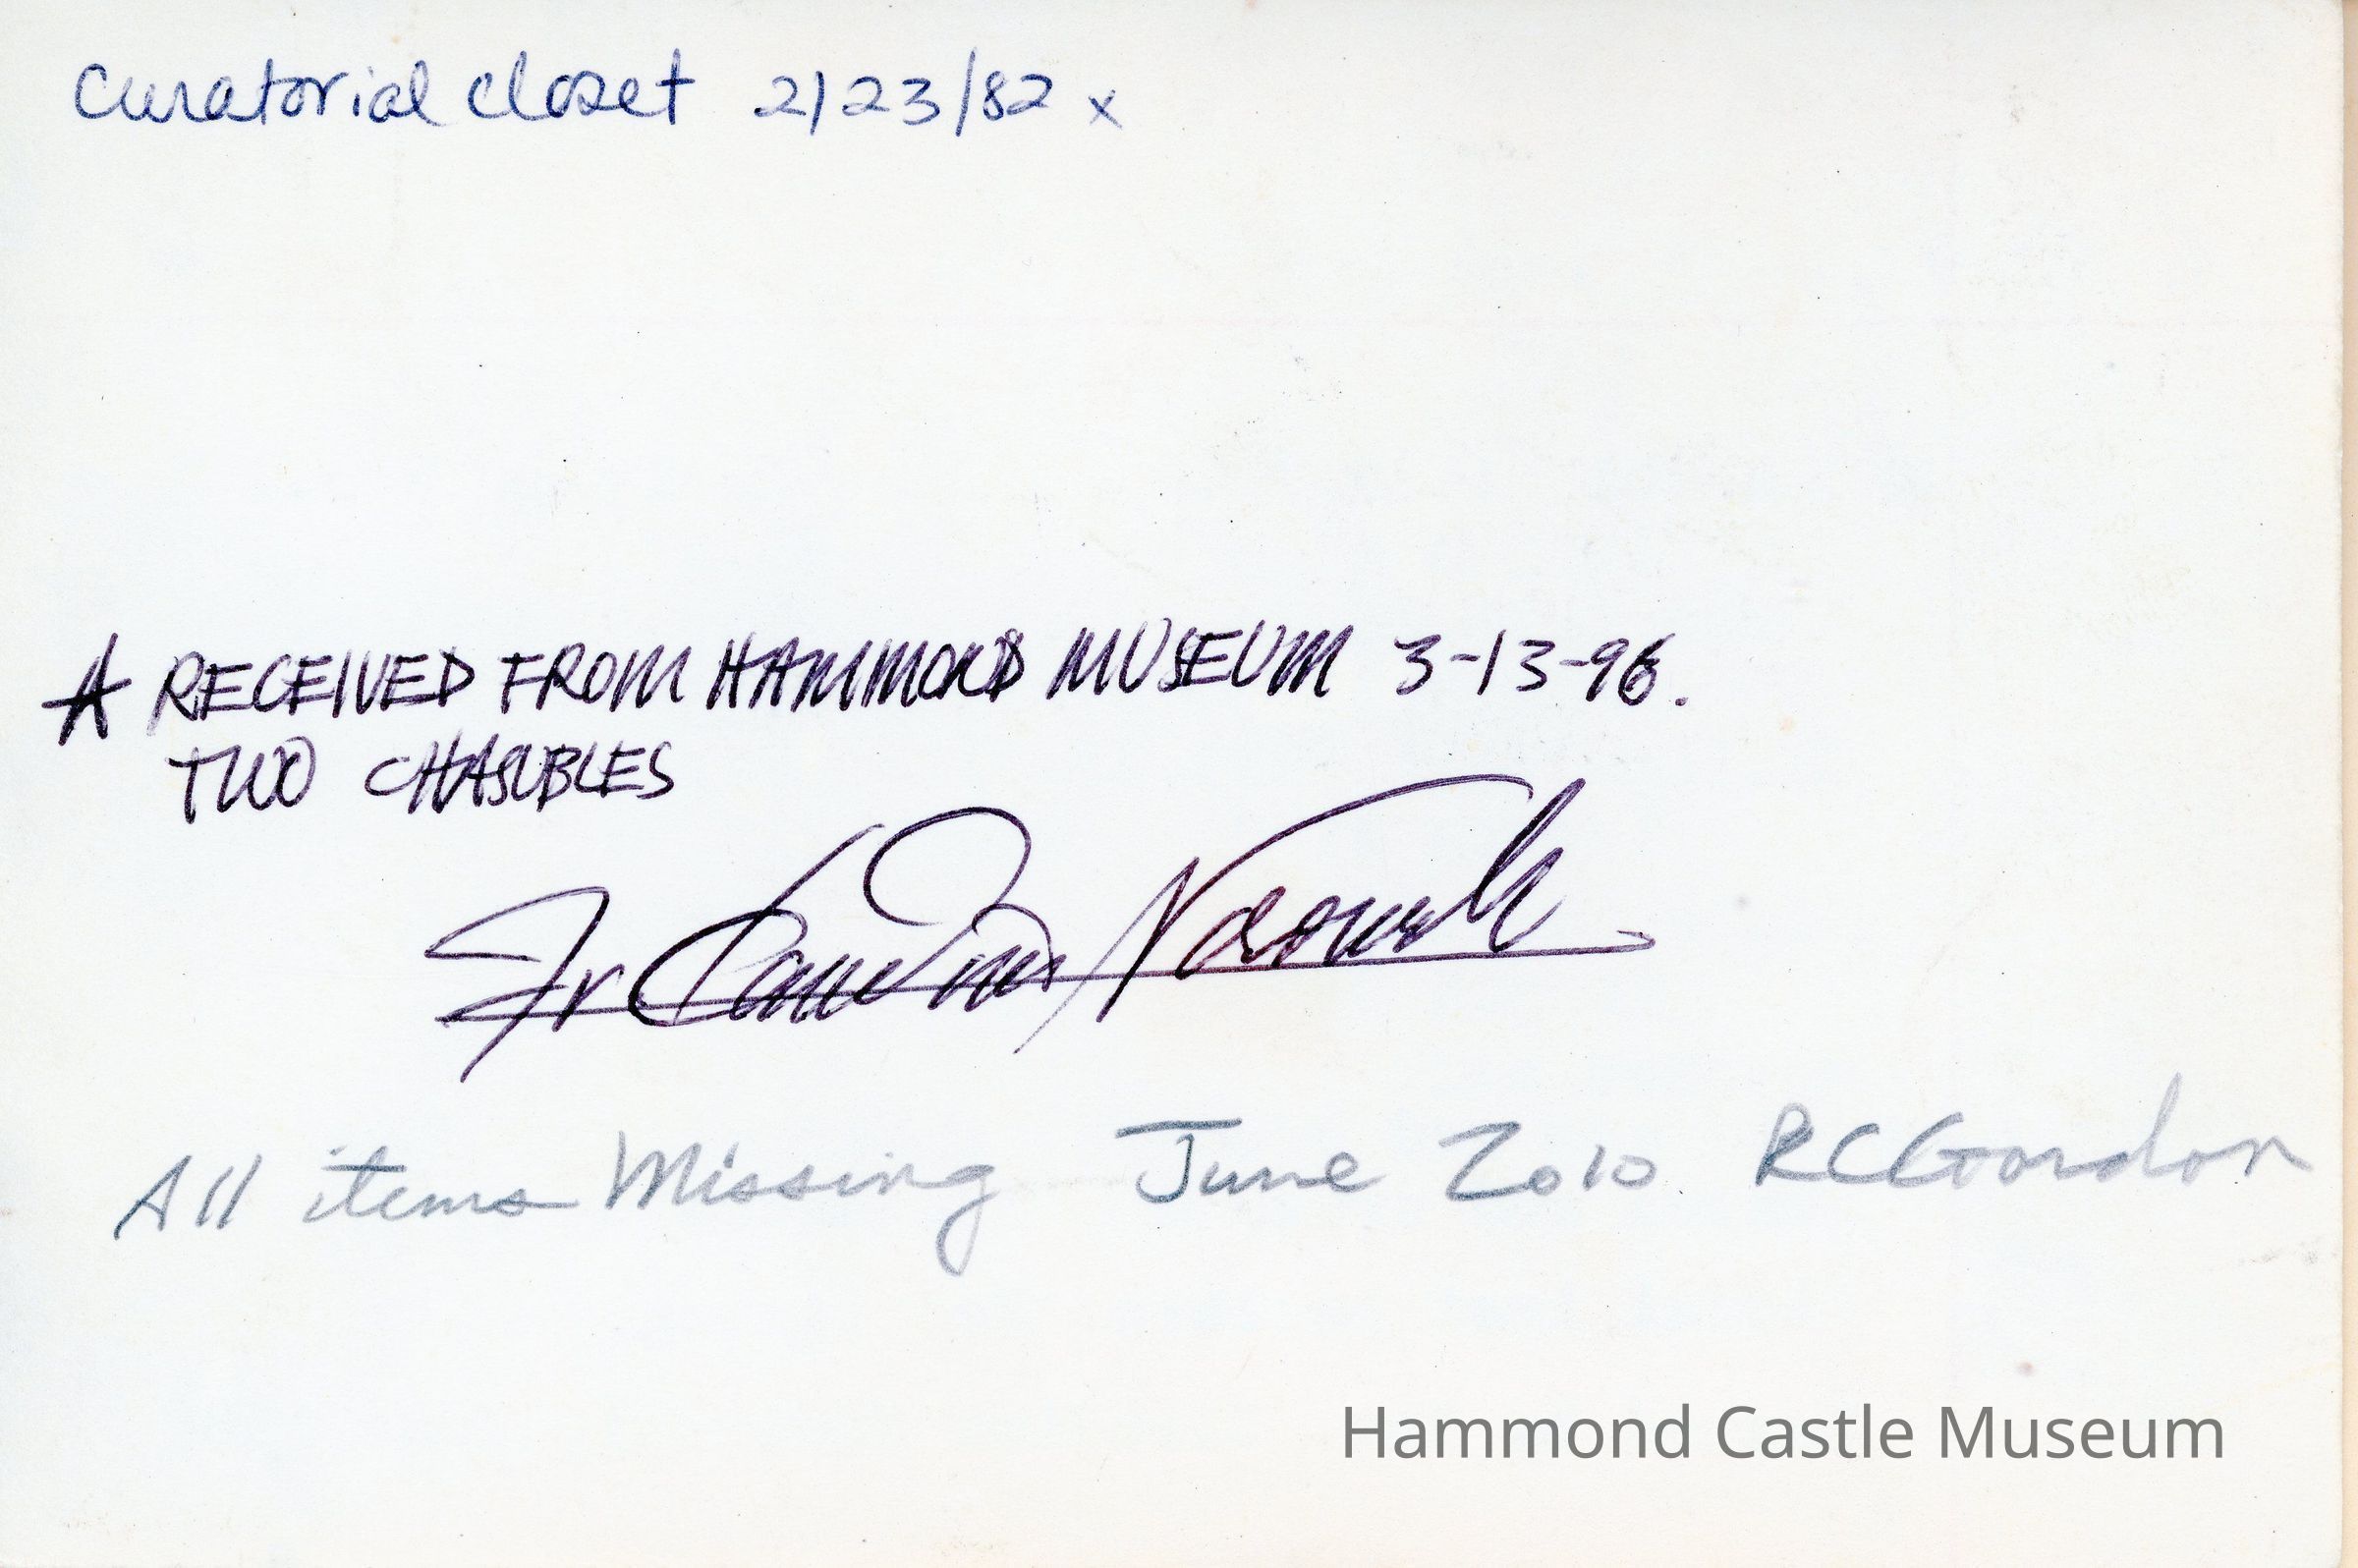 Curatorial closet 2/23/82 x
A RECEIVED FROM HAMMOND MUSEUM 3-13-96.
TWO CHASUBLES
Fr
All items Missing June 2010 RCGordon
Hammond Castle Museum